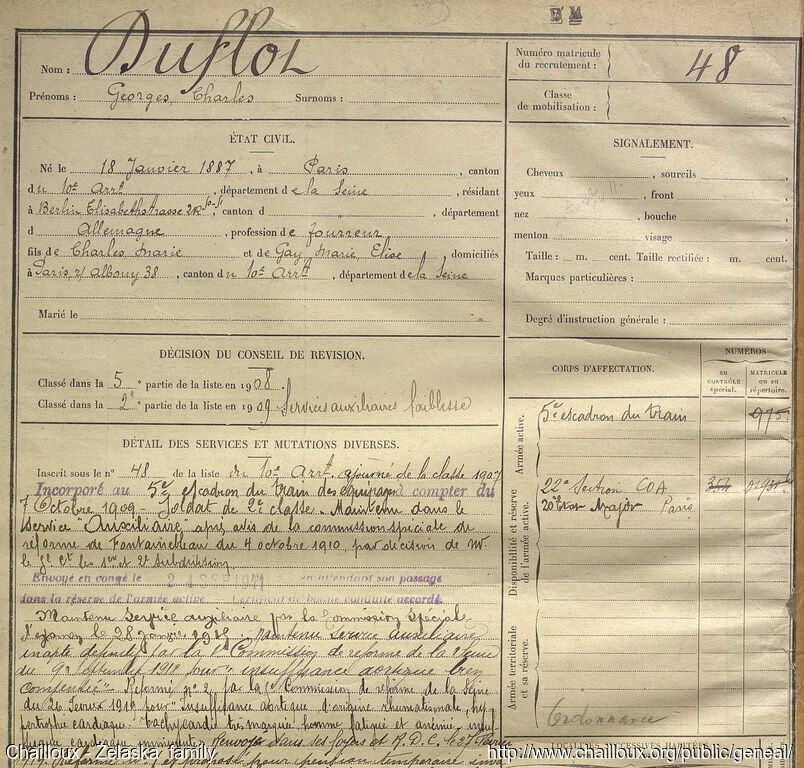 Nom : Duflot
Prénoms : Georges, Charles Surnoms :
Numéro matricule
du recrutement : 48
Classe
de mobilisation :
ÉTAT CIVIL.
Né le 18 Janvier 1887, à Paris, canton
du 10e Arrt, département de la Seine, résidant
à Berlin Elisabethstrasse, canton d, département
d Allemagne, profession de fourreur
fils de Charles Marie et de Gay Marie, Elise domiciliés
à Paris, r. Albouy 38, canton du 10e Arrt, département de la Seine
Marié le
SIGNALEMENT.
Cheveux, sourcils
yeux, front
nez, bouche
menton, visage
Taille : m. cent. Taille rectifiée : m. cent.
Marques particulières :
Degré d'instruction générale :
DÉCISION DU CONSEIL DE REVISION.
Classé dans la 5e partie de la liste en 1908
Classé dans la 2e partie de la liste en 1909 Services auxiliaires faiblesse
DÉTAIL DES SERVICES ET MUTATIONS DIVERSES.
Inscrit sous le n° 48 de la liste du 10e Arrt. ajourné de la classe 1907
Incorporé au 5e escadron du train des équipages à compter du
7 Octobre 1909 - Soldat de 2e classe - Maintenu dans le
Service "Auxiliaire" après avis de la commission spéciale de
réforme de Fontainebleau du 4 octobre 1910, par décision de Mr
le Gl Ct les 1re et 2e subdivision
Envoyé en congé le 24 SEP 1911 en attendant son passage
dans la réserve de l'armée active Certificat de bonne conduite accordé.
Maintenu Service auxiliaire par la Commission spéciale
Maintenu service auxiliaire
inapte définitif par la 1re Commission de réforme de la Seine
du 9 septembre 1918 pour "insuffisance aortique bien
compensée" - Réformé n° 2 par la Commission de réforme de la Seine
du 26 Février 1919 pour "insuffisance aortique d'origine rhumatismale, hy
pertrophie cardiaque - tachycardie très marquée homme fatigué et anémié
CORPS D'AFFECTATION.
NUMÉROS
AU
CONTRÔLE
spécial.
MATRICULE
OU AU
répertoire.
Armée active.
5e escadron du train 975
Disponibilité et réserve
de l'armée active.
22e Section COA
20 Etat Major Paris
Armée territoriale
et sa réserve.
LOCALITÉS SUCCESSIVES HABITÉES
Chailloux / Zelaska family
http://www.chailloux.org/public/geneal/